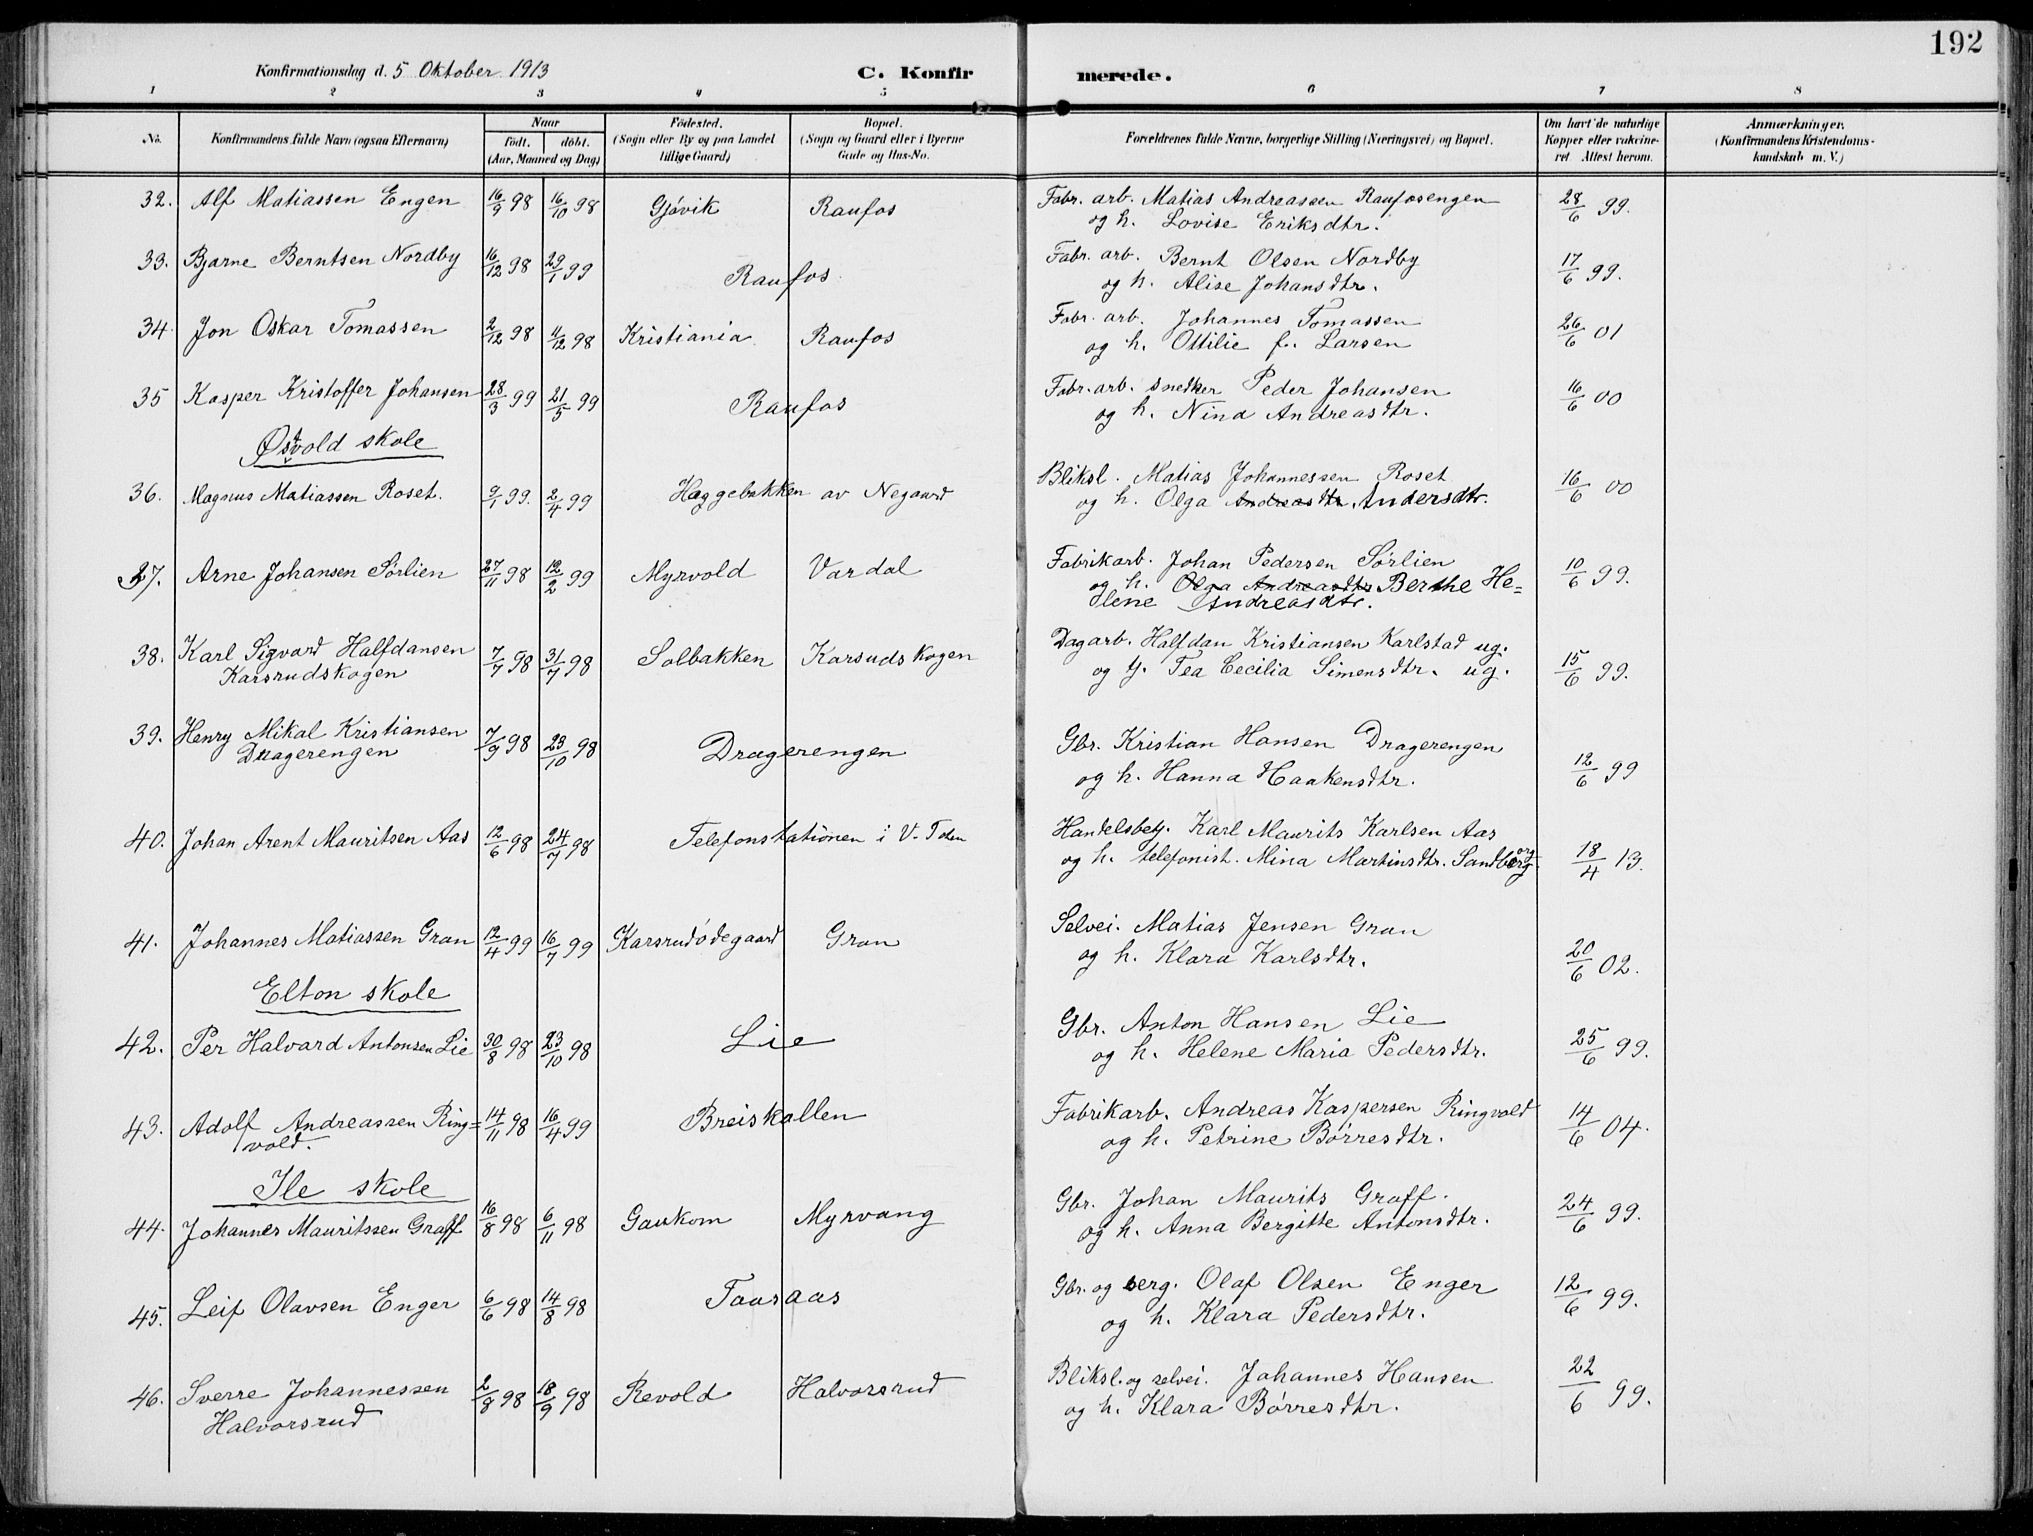 192
Konfirmationsdag d. 5 Oktober 1913 C. Konfirmerede.
1 2 3 4 5 6 7 8
No. Konfirmandens fulde Navn (ogsaa Efternavn) Naar født. døbt. (Aar, Maaned og Dag) Fødested. (Sogn eller By og paa Landet tillige Gaard) Bopæl. (Sogn og Gaard eller i Byerne Gade og Hus-No. Forældrenes fulde Navne, borgerlige Stilling (Næringsvei) og Bopæl. Om havt de naturlige Kopper eller vakcineret Attest herom. Anmærkninger. (Konfirmandens Kristendomskundskab m. V.)
32. Alf Matiassen Engen 16/9 98 16/10 98 Gjøvik Raufos Fabr. arb. Matias Andreassen Raufosengen 28/6 99.
og h. Lovise Eriksdtr.
33. Bjarne Berntsen Nordby 16/12 98 29/1 99 Raufos Fabr. arb. Bernt Olsen Nordby 17/6 99.
og h. Alise Johansdtr.
34 Jon Oskar Tomassen 2/12 98 11/12 98 Kristiania Raufos Fabr. arb. Johannes Tomassen 26/6 01
og h. Ottilie f. Larsen
35 Kasper Kristoffer Johansen 28/3 99 21/5 99 Raufos Fabr. arb. snedker Peder Johansen 16/6 00
og h. Nina Andreasdtr.
Østvold skole
36. Magnus Matiassen Roset. 9/1 99. 2/4 99 Haggebakken av Negaard Bliksl. Matias Johannessen Roset 16/6 00
og h. Olga Andreasdtr. Andersdtr.
37. Arne Johansen Sørlien 27/11 98 12/2 99 Myrvold Vardal Fabrikarb. Johan Pedersen Sørlien 10/6 99.
og h. Olga Andreasdtr Berthe He=
lene Andreasdtr.
38. Karl Sigvard Halfdansen 7/7 98 31/7 98 Solbakken Karsudskogen Dagarb. Halfdan Kristiansen Karlstad ug.
Karsrudskogen og Tea Cecilia Simensdtr. ug. 15/6 99.
39. Henry Mikal Kristiansen 7/9 98 23/10 98 Dragerengen Gbr. Kristian Hansen Dragerengen
Dragerengen og h. Hanna Haakensdtr. 12/6 99
40. Johan Arent Mauritsen Aas 12/6 98 24/7 98 Telefonstationen i V. Toten Handelsbetj. Karl Maurits Karlsen Aas
og h. telefonist. Mina Martinsdtr. Sandberg 18/4 13.
41. Johannes Matiassen Gran 12/4 99 16/7 99 Karsrudødegaard Gran Selvei. Matias Jensen Gran
og h. Klara Karlsdtr. 20/6 02.
Elton skole
42. Per Halvard Antonsen Lie 30/8 98 23/10 98 Lie Gbr. Anton Hansen Lie 25/6 99.
og h. Helene Maria Pedersdtr.
43. Adolf Andreassen Ring= 14/11 98 16/4 99 Breiskallen Fabrikarb. Andreas Kaspersen Ringvold 14/6 04.
vold. og h. Petrine Børresdtr.
Ile skole
44. Johannes Mauritssen Graff 16/8 98 6/11 98 Gaukom Myrvang Gbr. Johan Maurits Graff. 24/6 99.
og h. Anna Bergitte Antonsdtr.
45. Leif Olavsen Enger 6/6 98 14/8 98 Faasaas Gbr. og serg. Olaf Olsen Enger 12/6 99.
og h. Klara Pedersdtr.
46. Sverre Johannessen 2/8 98 18/9 98 Revold Halvorsrud Bliksl. og selvei. Johannes Hansen 22/6 99.
Halvorsrud og h. Klara Børresdtr.